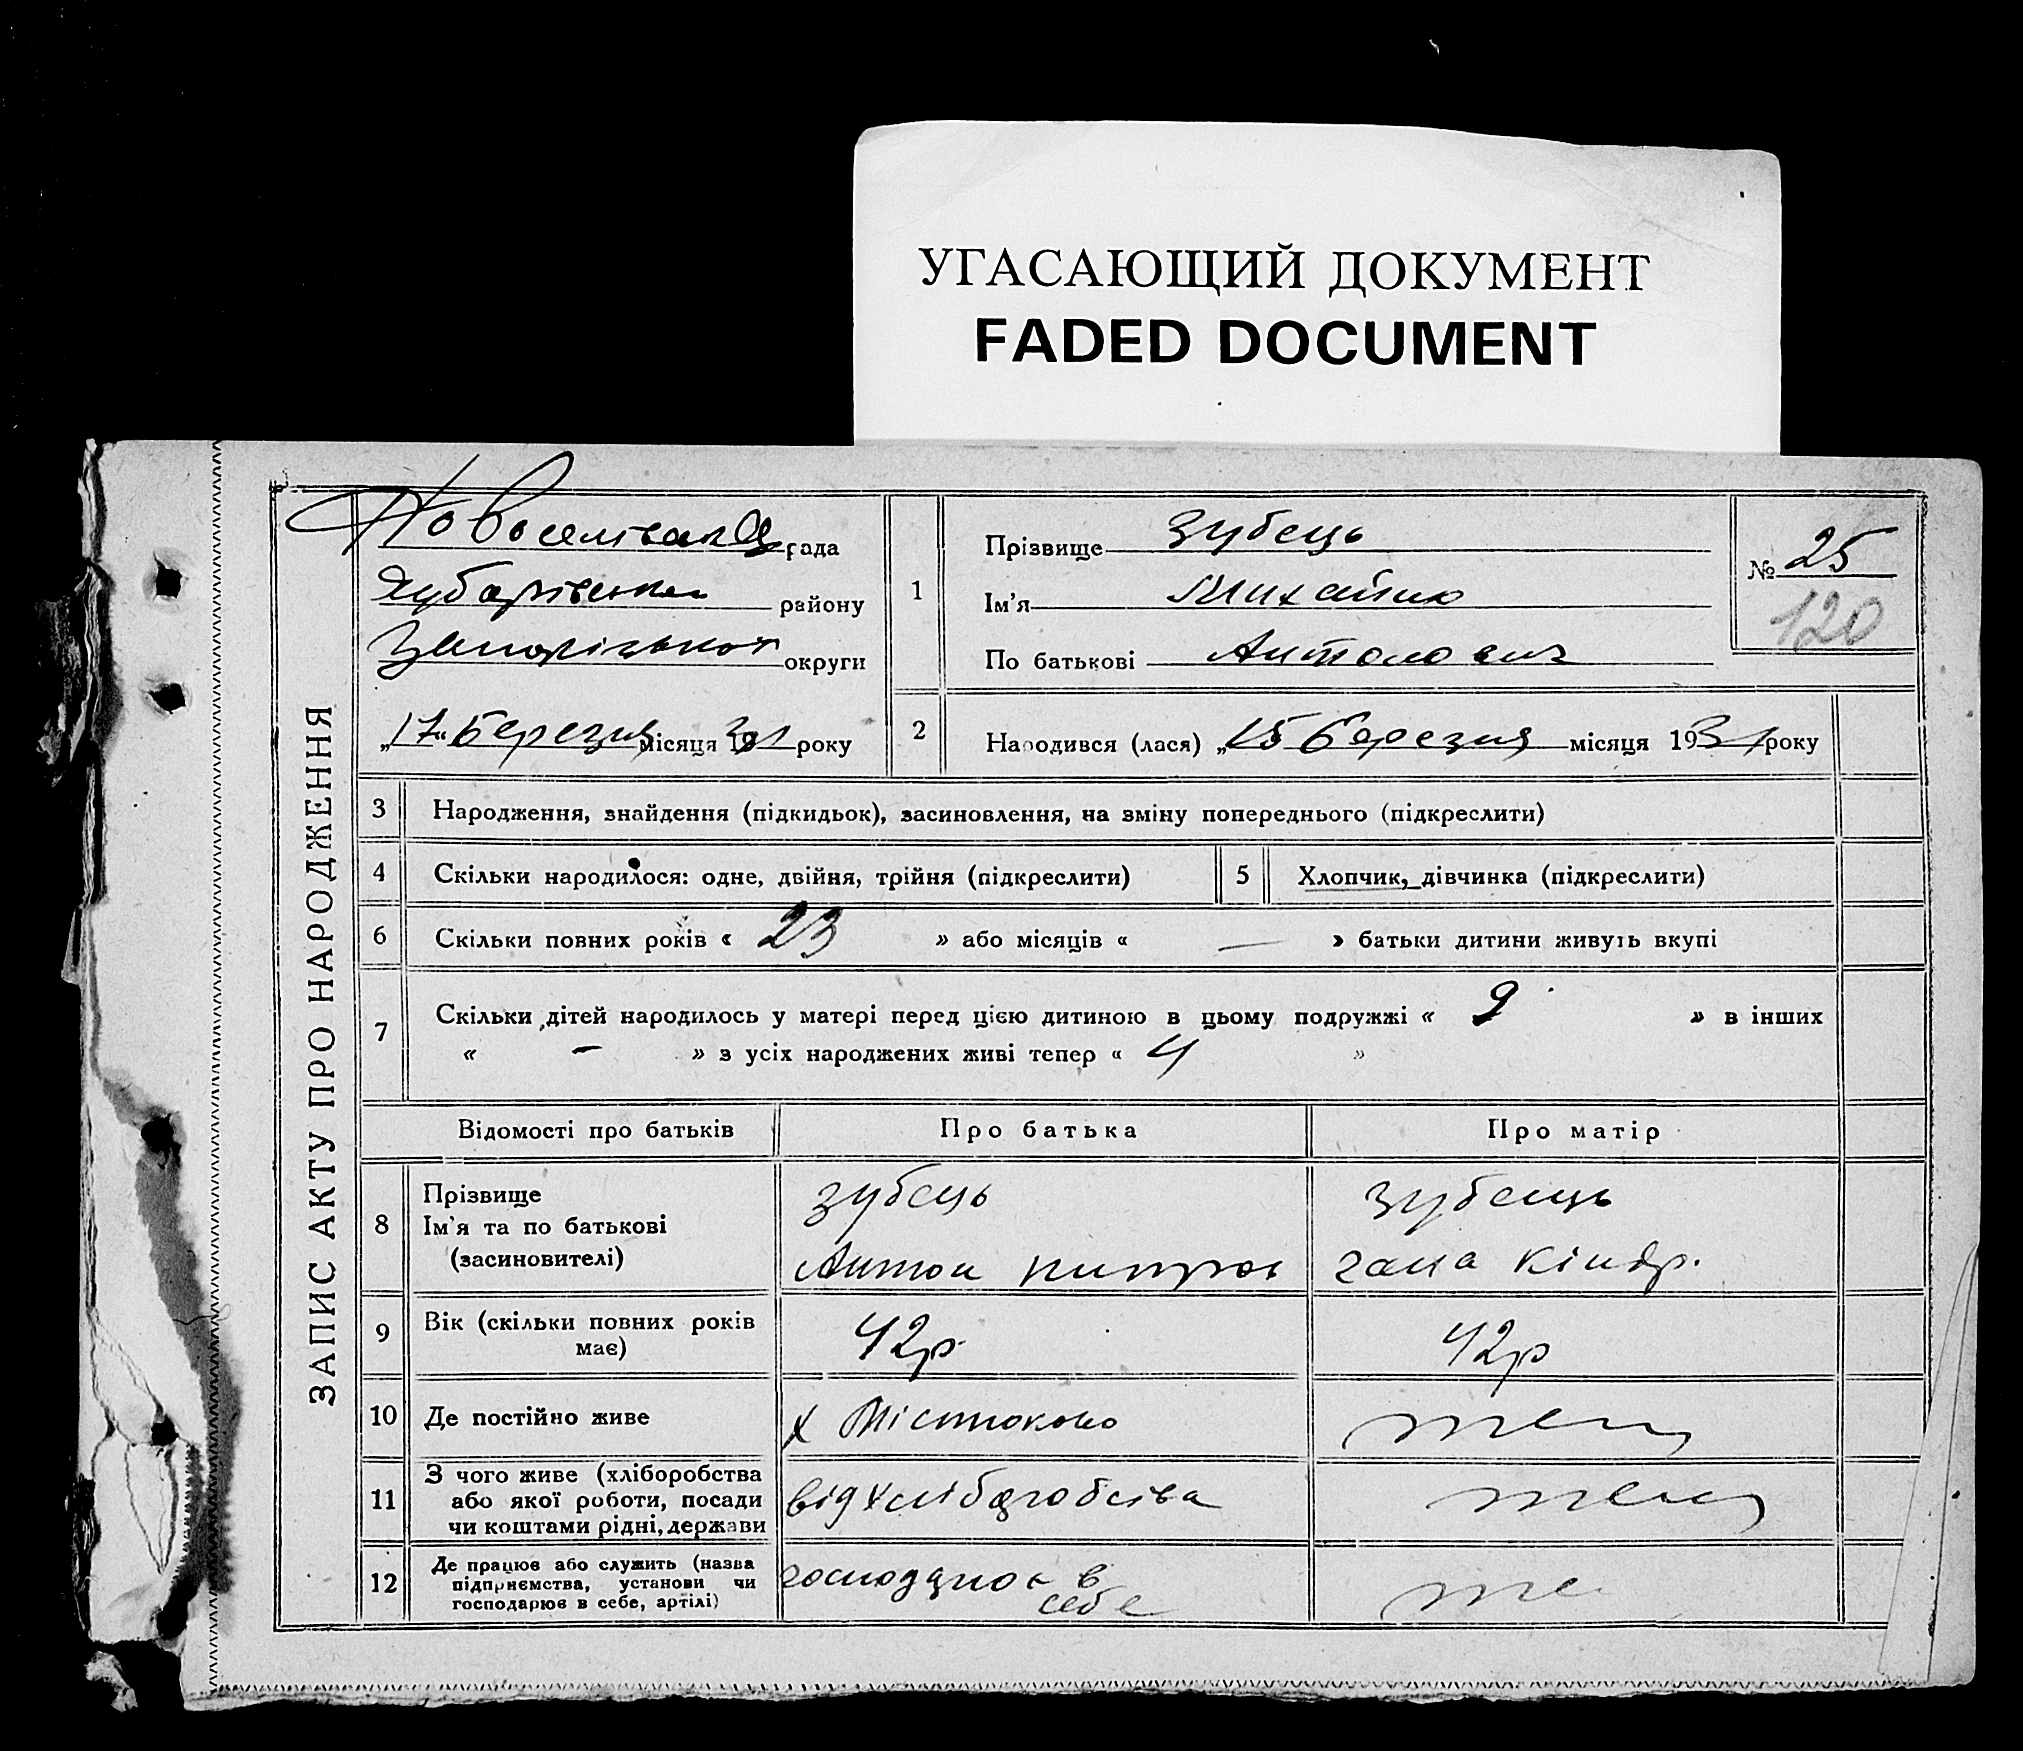 УГАСАЮЩИЙ ДОКУМЕНТ
FADED DOCUMENT
ЗАПИС АКТУ ПРО НАРОДЖЕННЯ
рада
району
округи
„17“ березня місяця 1931 року
1
Прізвище Зубець
Ім'я Михайло
По батькові Антонович
№ 25
120
2
Народився (лася) „15 березня місяця 1931 року
3 Народження, знайдення (підкидьок), засиновлення, на зміну попереднього (підкреслити)
4 Скільки народилося: одне, двійня, трійня (підкреслити)
5 Хлопчик, дівчинка (підкреслити)
6 Скільки повних років « 23 » або місяців « — » батьки дитини живуть вкупі
7 Скільки дітей народилось у матері перед цією дитиною в цьому подружжі « 9 » в інших
« – » з усіх народжених живі тепер « 4 »
Відомості про батьків Про батька Про матір
8 Прізвище
Ім'я та по батькові
(засиновителі)
Зубець
Антон
Зубець
гана Кіндр.
9 Вік (скільки повних років
має)
42р
42р
10 Де постійно живе
х
теж
11 З чого живе (хліборобства
або якої роботи, посади
чи коштами рідні, держави
від хліборобства
теж
12 Де працює або служить (назва
підприємства, установи чи
господарює в себе, артілі)
господарює в
себе